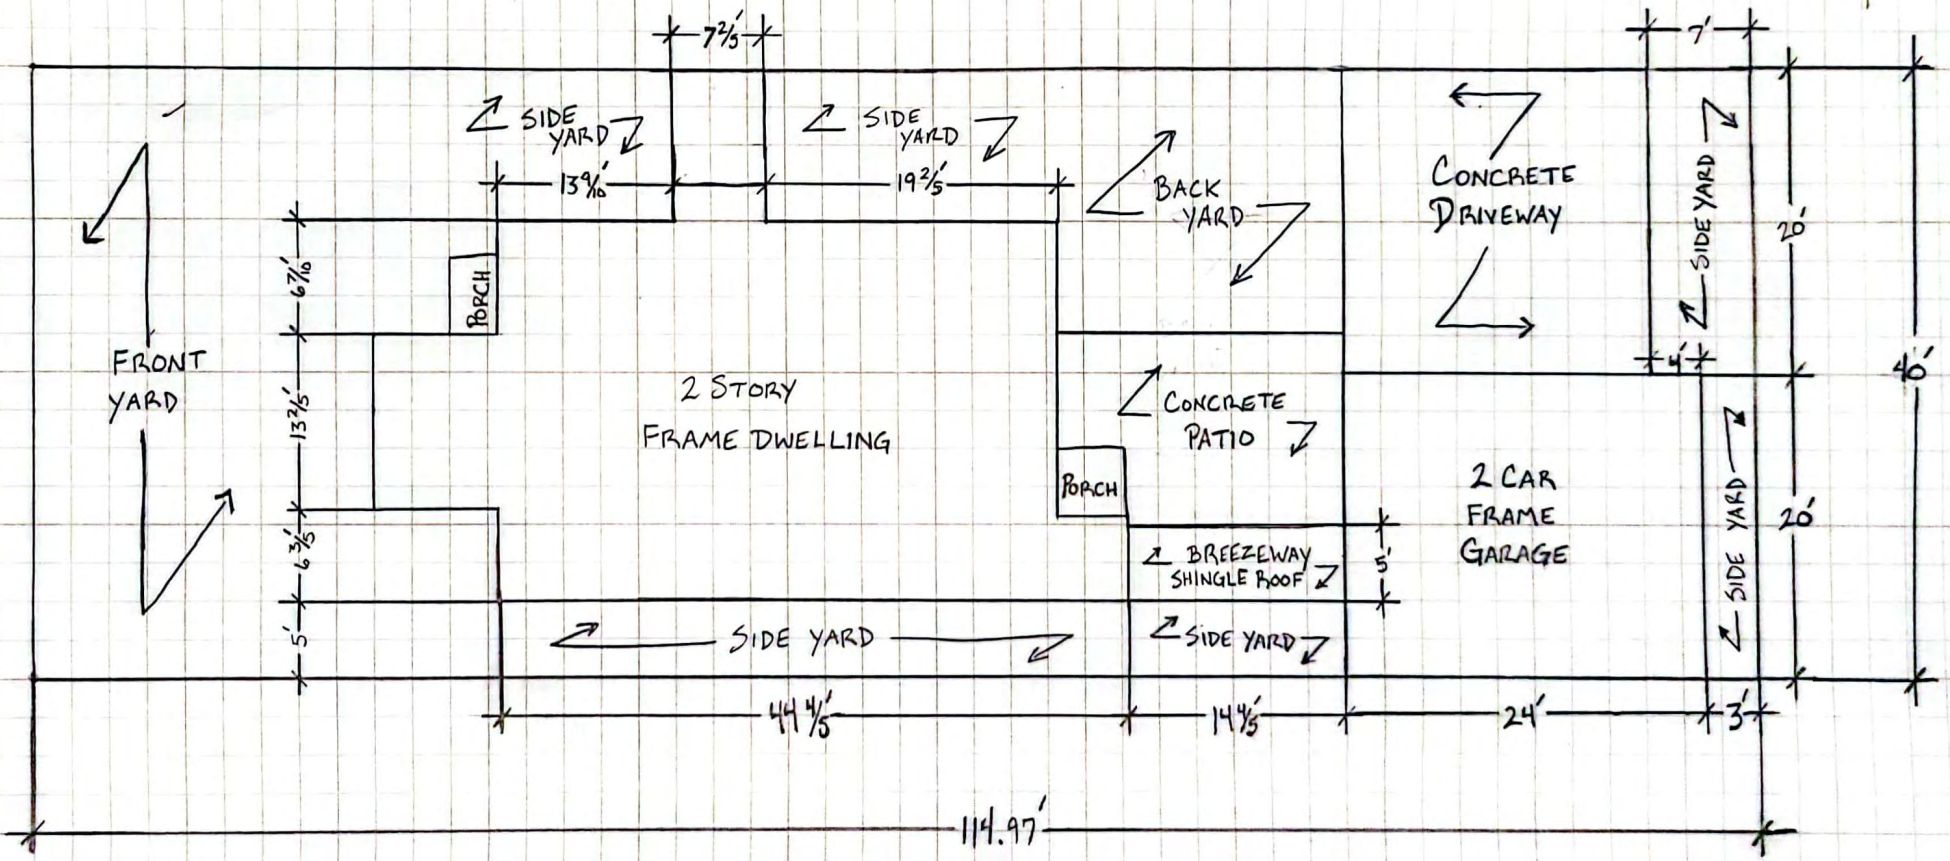 7 2/5'
7'
SIDE
YARD
SIDE
YARD
13 9/10'
19 2/5'
BACK
YARD
CONCRETE
DRIVEWAY
SIDE YARD
20'
6 7/10'
PORCH
FRONT
YARD
4'
40'
13 2/5'
2 STORY
FRAME DWELLING
CONCRETE
PATIO
PORCH
2 CAR
FRAME
GARAGE
SIDE YARD
20'
6 3/5'
BREEZEWAY
SHINGLE ROOF
5'
5'
SIDE YARD
SIDE YARD
44 4/5'
14 4/5'
24'
3'
114.97'